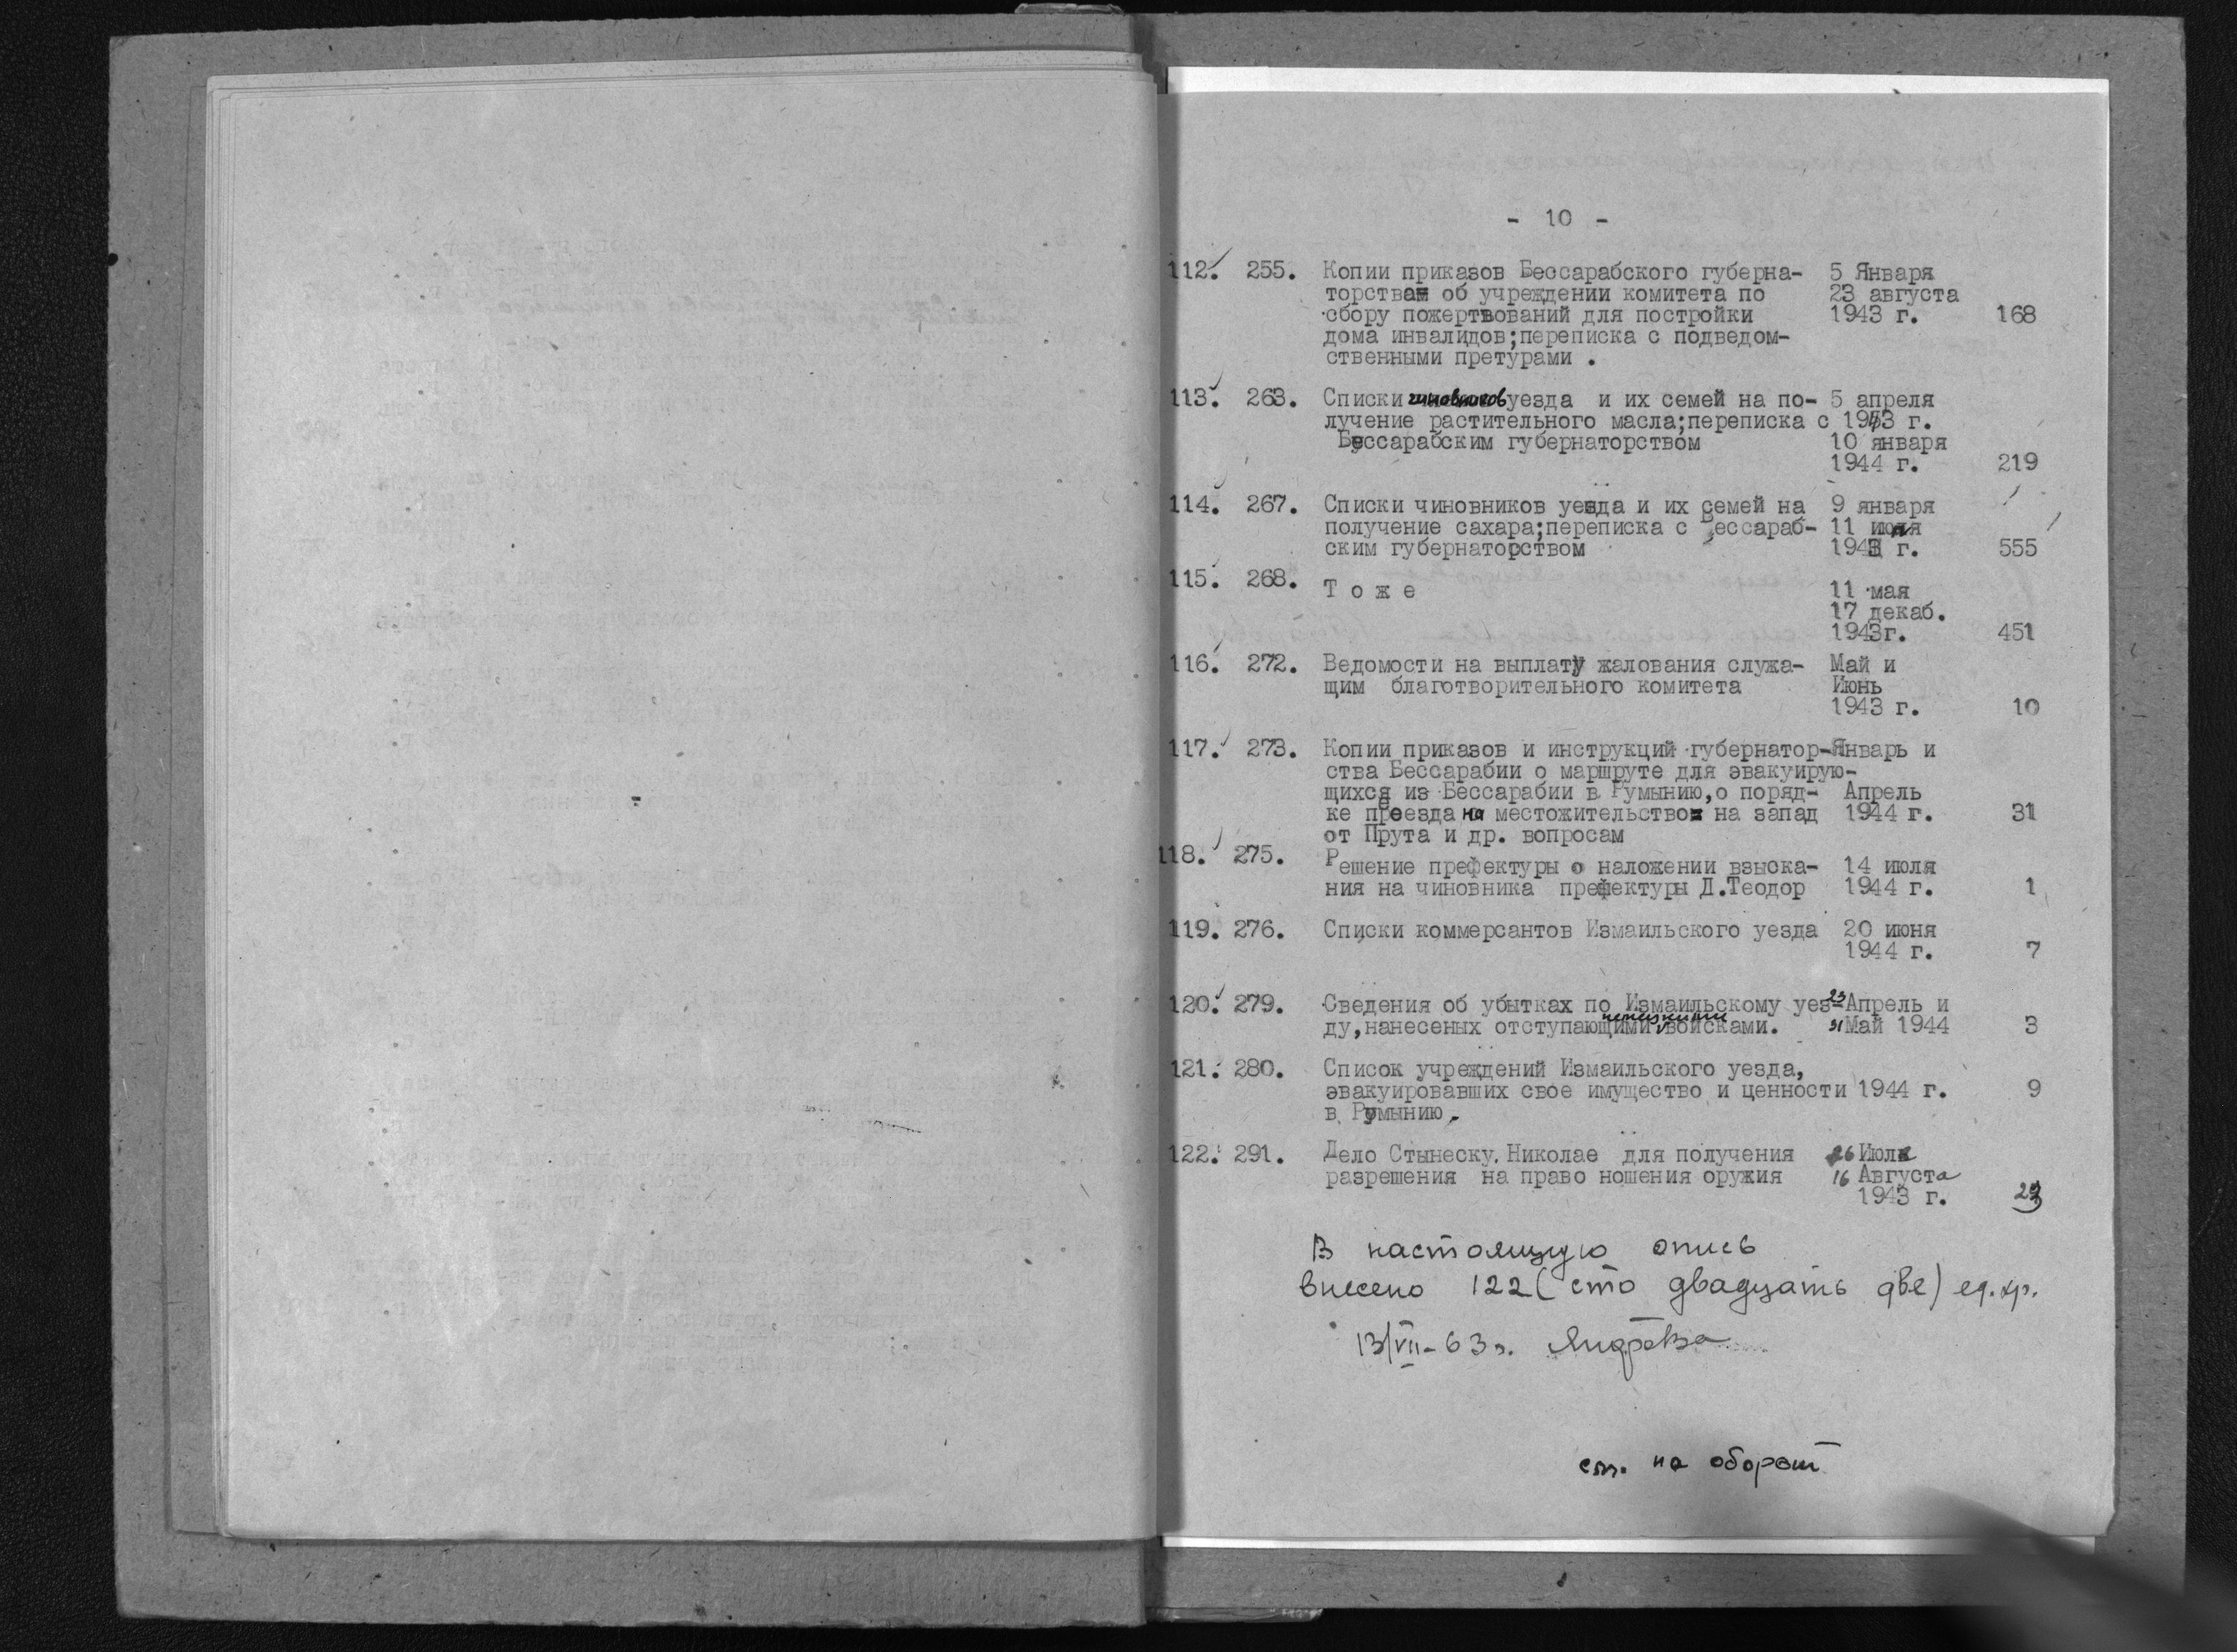 - 10 -
112. 255. Копии приказов Бессарабского губерна- 5 Января
торства об учреждении комитета по 23 августа
сбору пожертвований для постройки 1943 г. 168
дома инвалидов;переписка с подведом-
ственными претурами .
113. 263. Списки чиновников уезда и их семей на по- 5 апреля
лучение растительного масла;переписка с 1943 г.
Бессарабским губернаторством 10 января
1944 г. 219
114. 267. Списки чиновников уезда и их семей на 9 января
получение сахара;переписка с Бессараб- 11 июля
ским губернаторством 1943 г. 555
115. 268. Т о ж е 11 мая
17 декаб.
1943г. 451
116. 272. Ведомости на выплату жалования служа- Май и
щим благотворительного комитета Июнь
1943 г. 10
117. 273. Копии приказов и инструкций губернатор- Январь и
ства Бессарабии о маршруте для эвакуирую-
щихся из Бессарабии в Румынию,о поряд- Апрель
ке проезда на местожительство на запад 1944 г. 31
от Прута и др. вопросам
118. 275. Решение префектуры о наложении взыска- 14 июля
ния на чиновника префектуры Д.Теодор 1944 г. 1
119. 276. Списки коммерсантов Измаильского уезда 20 июня
1944 г. 7
120. 279. Сведения об убытках по Измаильскому уез- 23 Апрель и
ду,нанесеных отступающими немецкими войсками. 31 Май 1944 3
121. 280. Список учреждений Измаильского уезда,
эвакуировавших свое имущество и ценности 1944 г. 9
в Румынию.
122. 291. Дело Стынеску Николае для получения 26 Июля
разрешения на право ношения оружия 16 Августа
1943 г. 23
В настоящую опись
внесено 122 (сто двадцать две) ед.хр.
13/VII-63г.
см. на оборот